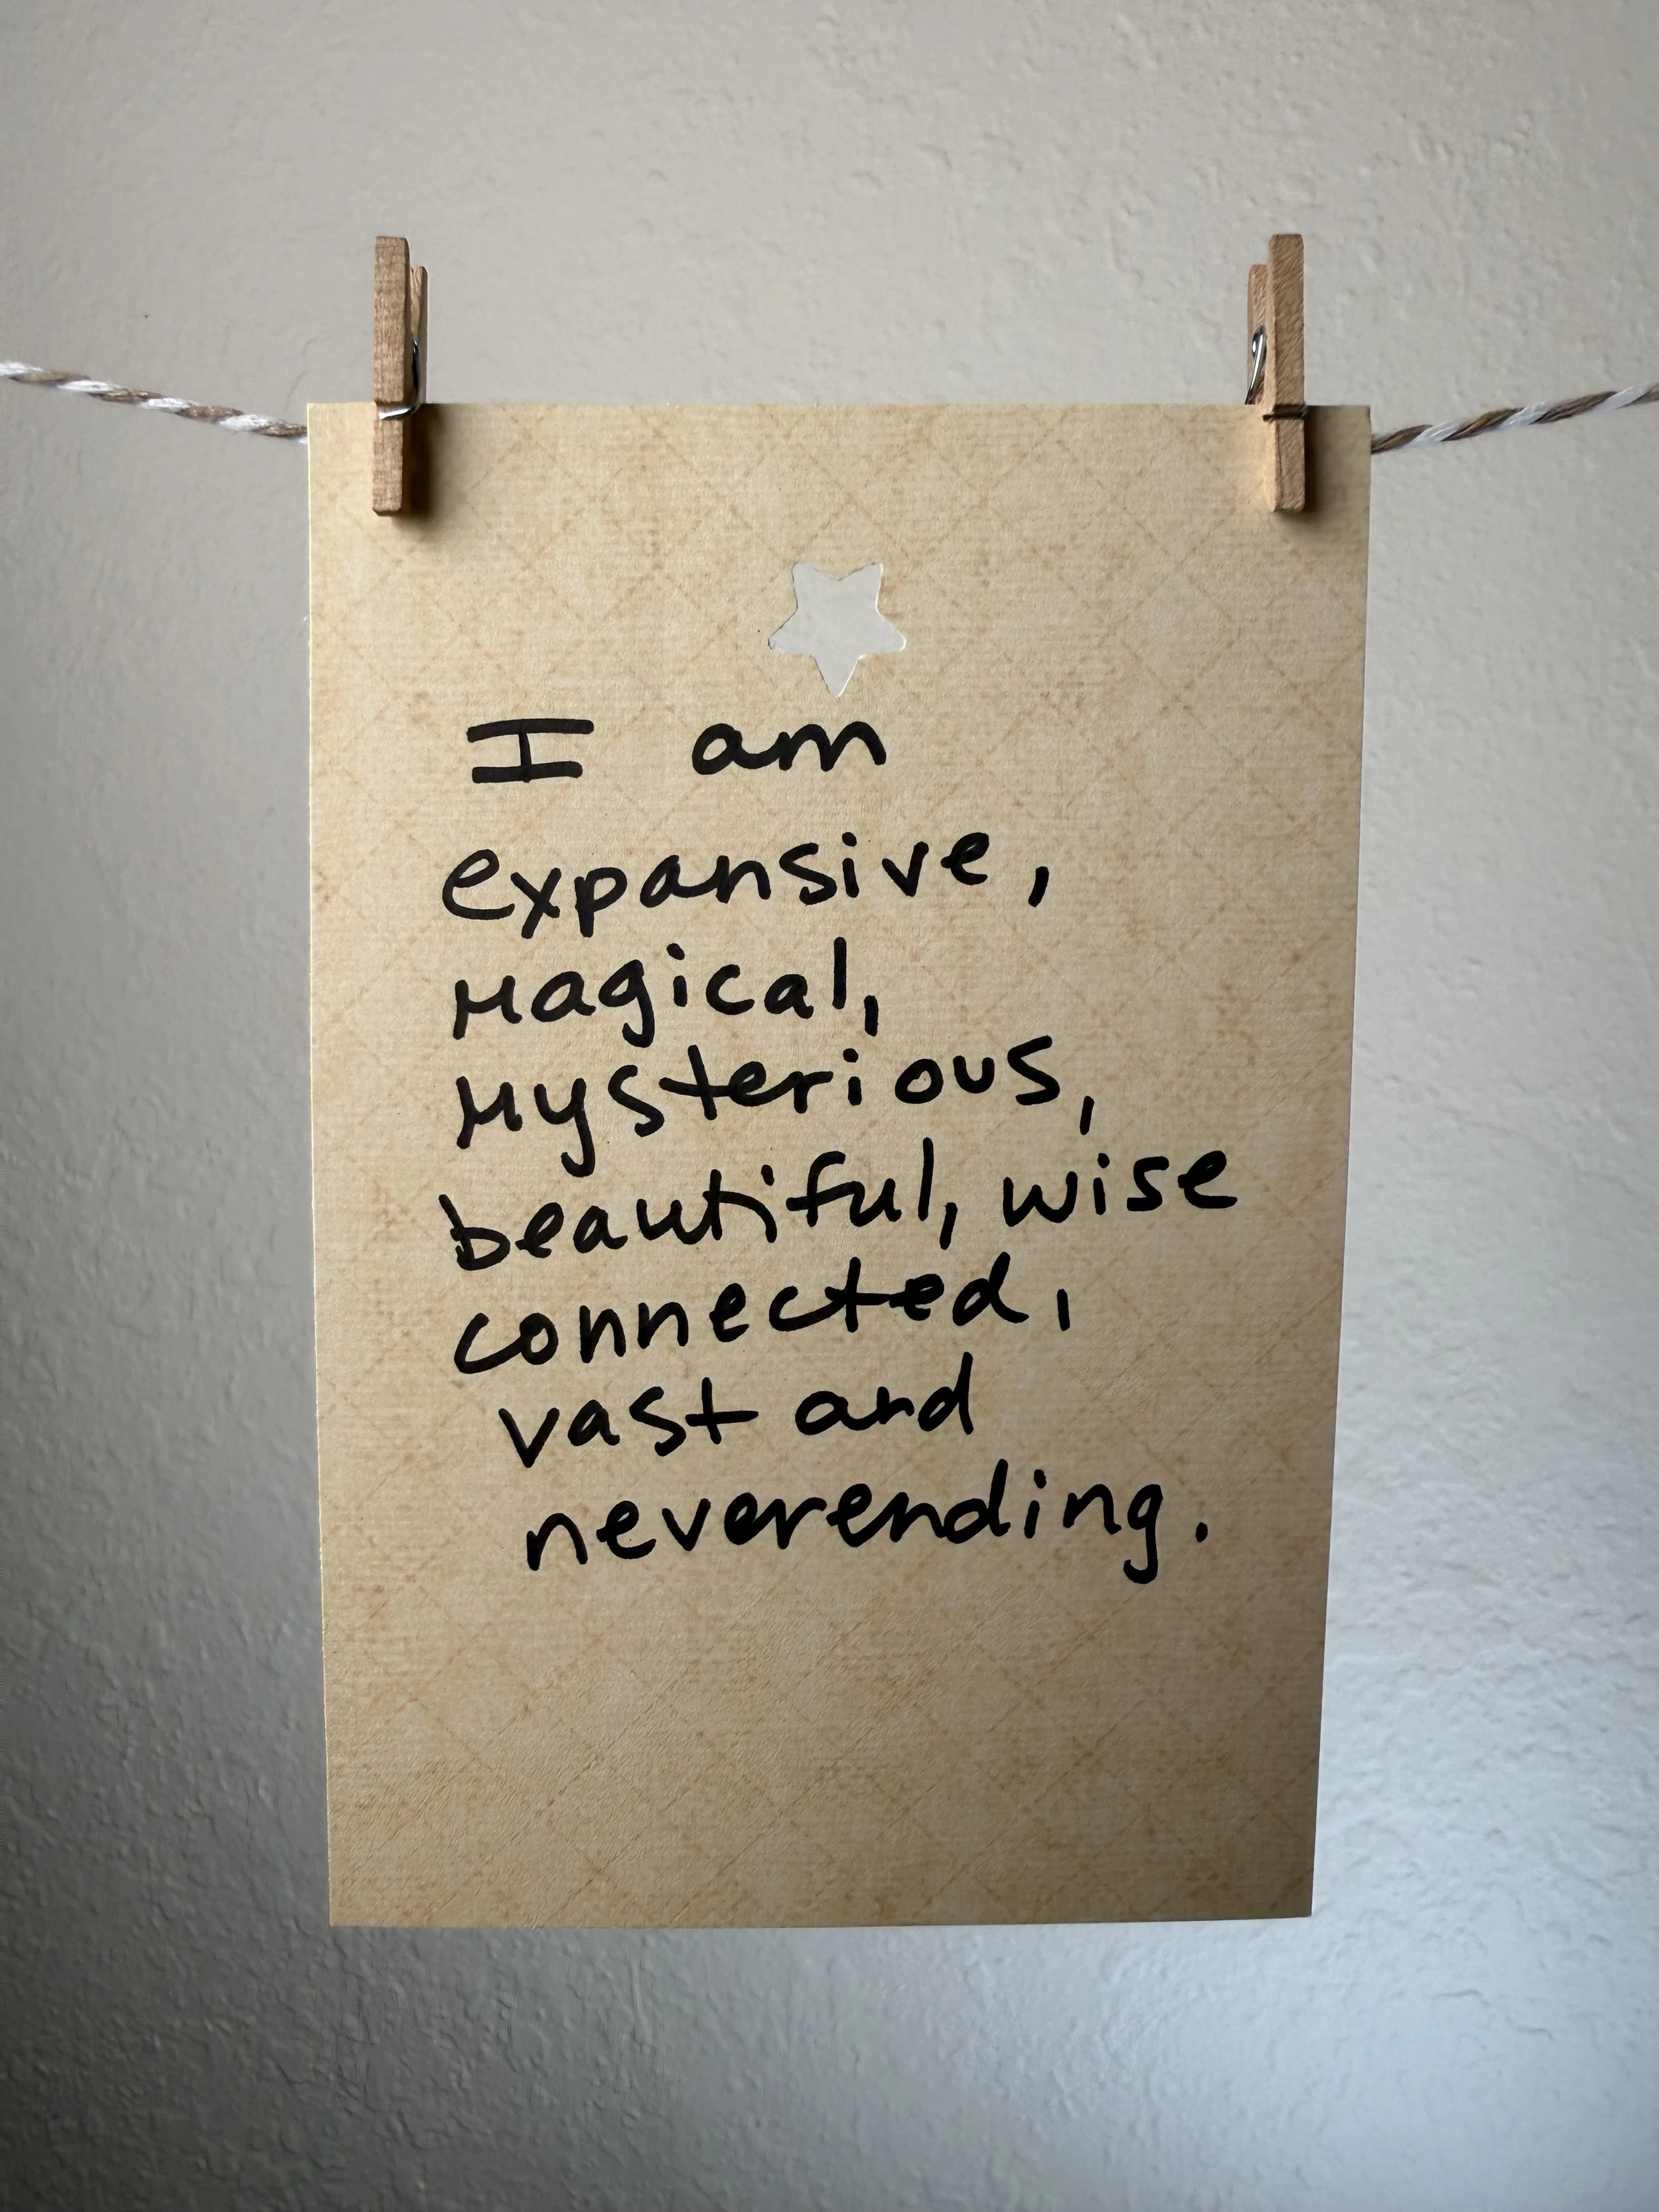 I am
expansive,
magical,
mysterious,
beautiful, wise
connected,
vast and
neverending.